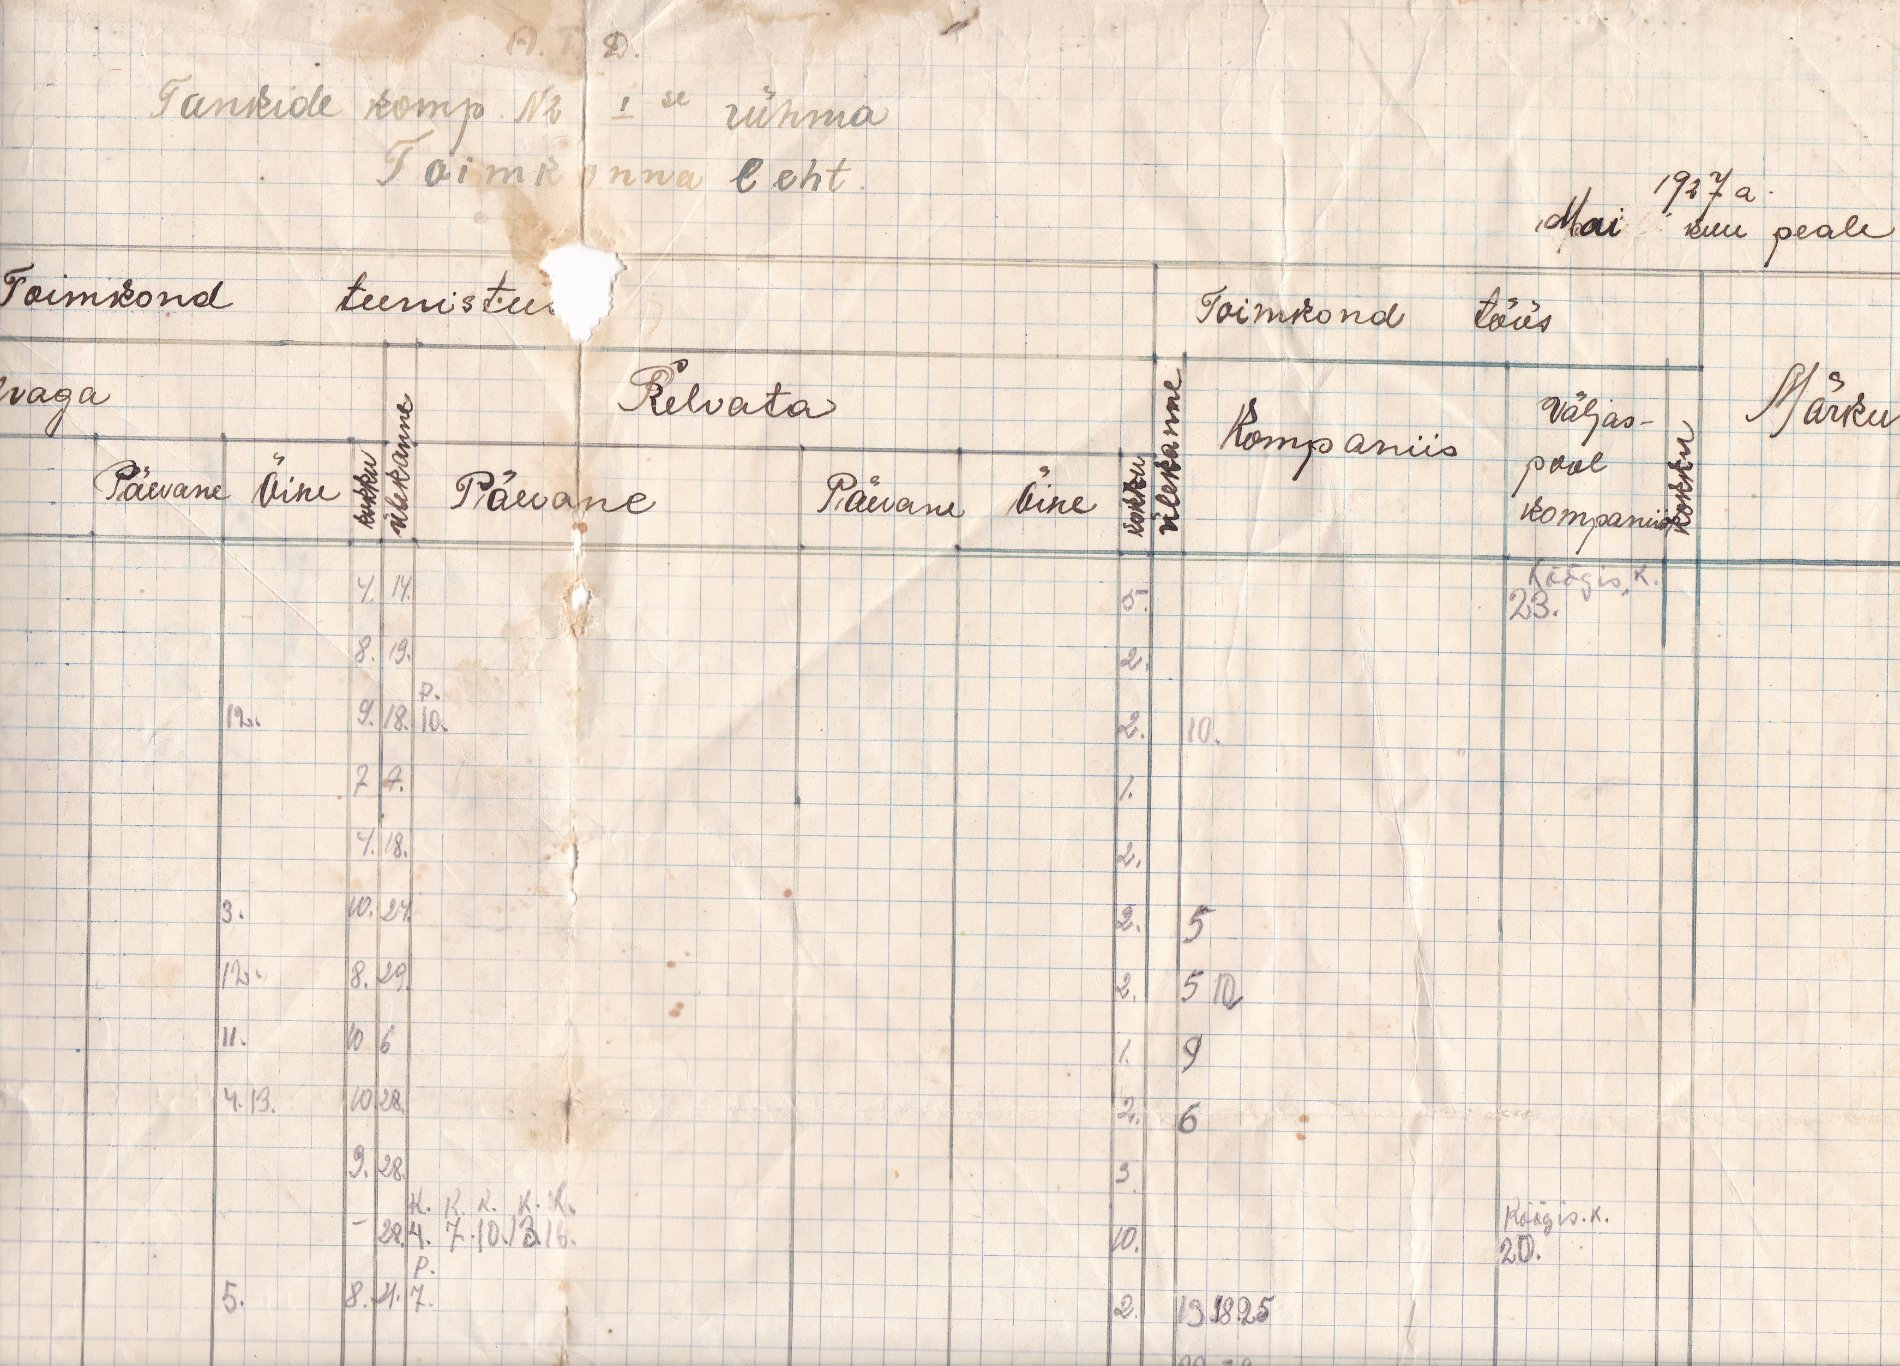 A. T. D.
Tankide komp. № I se rühma
Toimkonna leht.
1927 a.
Mai kuu peale
Toimkond teenistus
Toimkond töös
vaga
Relvata
ülekanne
ülekanne
Kompaniis
Väljas-
pool
kompaniid
kokku
Märku
Päevane Öine kokku
Päevane
Päevane Öine kokku
Köögis, K.
4. 14. 5. 23.
8. 19. 2.
P.
12. 9. 18. 10. 2. 10.
7 1.
4. 18. 2.
3. 10. 27. 2. 5
12. 8. 29. 2. 5 10
11. 10 6 1. 9
4. 13. 10. 28. 2. 6
9. 28. 3.
K. K. K. K. K. Köögis. K.
- 28. 4. 7. 10. 13. 16. 10. 20.
P.
5. 8. 7. 2. 13 18 25